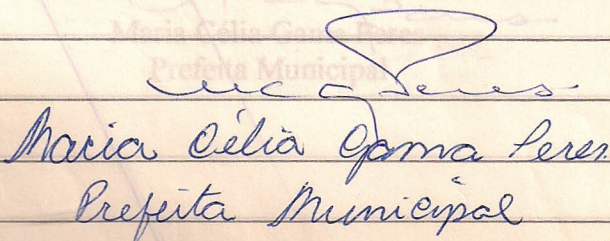 Maria Célia Gama Peres
Prefeita Municipal
Maria Célia Gama Peres
Prefeita Municipal